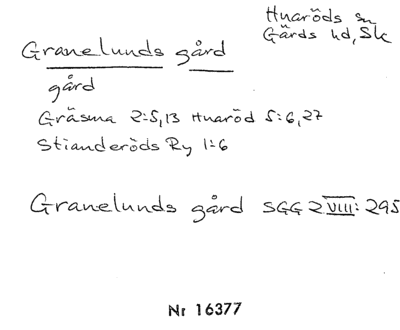 Huaröds sn
Gärds hd, Sk
Granelunds gård
gård
Gräsma 2:5,13 Huaröd 5:6,27
Stianderöds Ry 1:6
Granelunds gård SGG 2 VIII: 295
Nr 16377